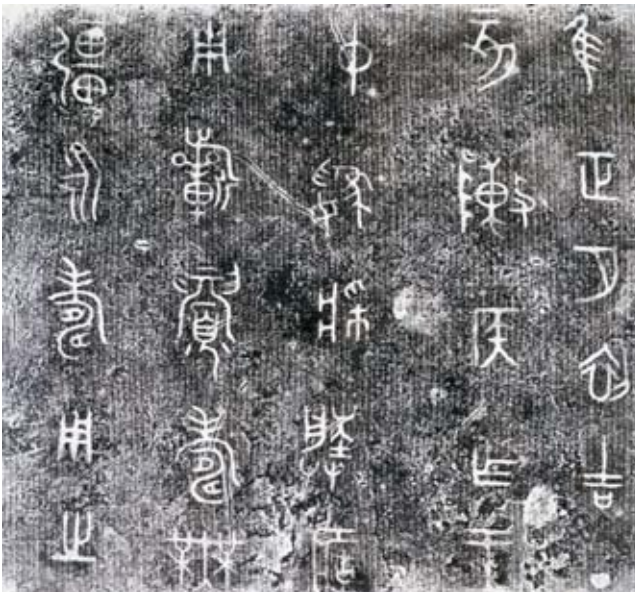 隹正月初吉丁
亥敶侯乍王
中媯
用𣄨眉壽無
彊永壽用之